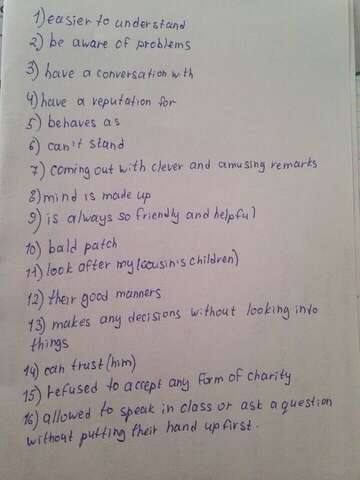 1) easier to understand
2) be aware of problems
3) have a conversation with
4) have a reputation for
5) behaves as
6) can't stand
7) coming out with clever and amusing remarks
8) mind is made up
9) is always so friendly and helpful
10) bald patch
11) look after my (cousin's children)
12) their good manners
13) makes any decisions without looking into
things
14) can trust (him)
15) refused to accept any form of charity
16) allowed to speak in class or ask a question
without putting their hand up first.